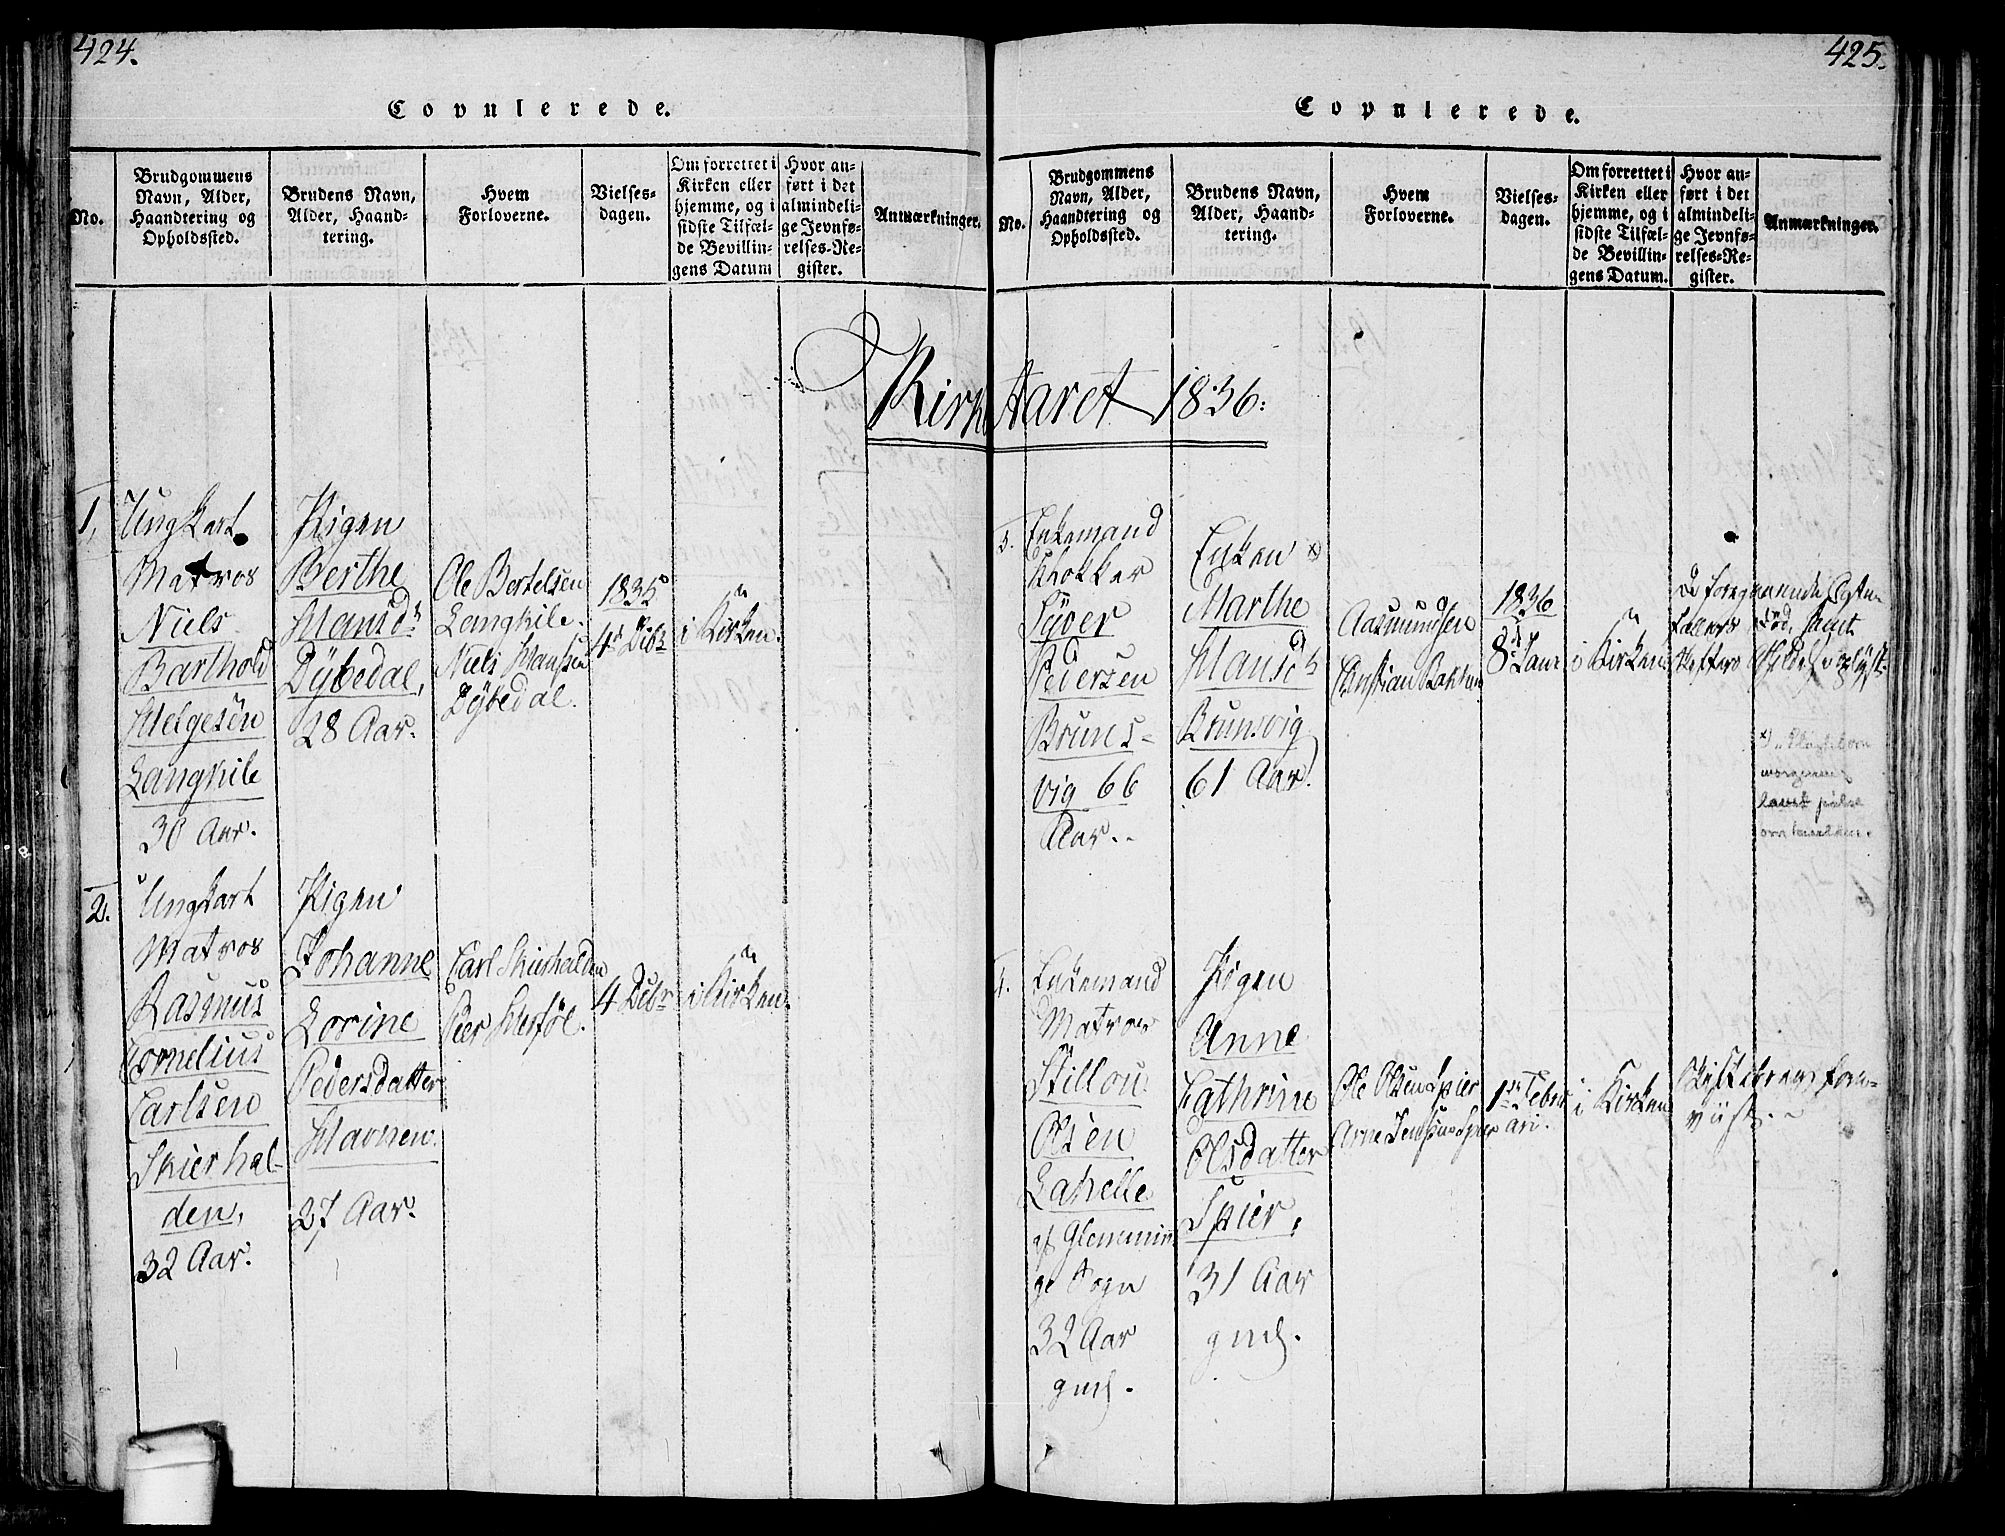 424.
Copulerede.
No.
Brudgommens
Navn, Alder,
Haandtering og
Opholdssted.
Brudens Navn,
Alder, Haand-
tering.
Hvem
Forloverne.
Vielses-
dagen.
Om forrettet i
Kirken eller
hjemme, og i
sidste Tilfæl-
de Bevillin-
gens Datum
Hvor an-
ført i det
almindeli-
ge Jevnfø-
relses-Re-
gister.
Anmærkninger.
Kirke Aaret 1836.
1,
Ungkarl
Matros
Niels
Barthold
Helgesen
Langkile
30 Aar.
Pigen
Berthe
Hansdr
Dybedal,
28 Aar.
Ole Bertelsen
Langkile.
Niels Hansen
Dybedal.
1835
4de Debr
i Kirken.
2.
Ungkarl
Matros
Rasmus
Cornelius
Carlsen
Skierhal-
den,
32 Aar.
Pigen
Johanne
Lorine
Pedersdatter
Havnen.
27 Aar.
Carl Skierhalden
Peer Herføl.
4 Debr
i Kirken.
425.
Copulerede.
No.
Brudgommens
Navn, Alder,
Haandtering og
Opholdssted.
Brudens Navn,
Alder, Haand-
tering.
Hvem
Forloverne.
Vielses-
dagen.
Om forrettet i
Kirken eller
hjemme, og i
sidste Tilfæl-
de Bevillin-
gens Datum.
Hvor an-
ført i det
almindeli-
ge Jevnfø-
relses-Re-
gister.
Anmærkninger.
3.
Enkemand
Klokker
Syver
Pedersen
Bruns-
vig 66
Aar.
Enken x)
Marthe
Hansdr
Brunsvig
61 Aar.
Aasmundsen
Christian Bakken
1836
8de Janr
i Kirken
De foregaaende Egte-
fællers Død, samt
Skiftes
4.
Enkemand
Matros
Stillou
Olsen
Lahelle
af Glemmin-
ge Sogn
32 Aar
gml.
Pigen
Anne
Cathrine
Olsdatter
Spier,
31 Aar
gml.
Ole Olsen Spier
Arne Jensen Spier
1ste Febru
ari.
i Kirken